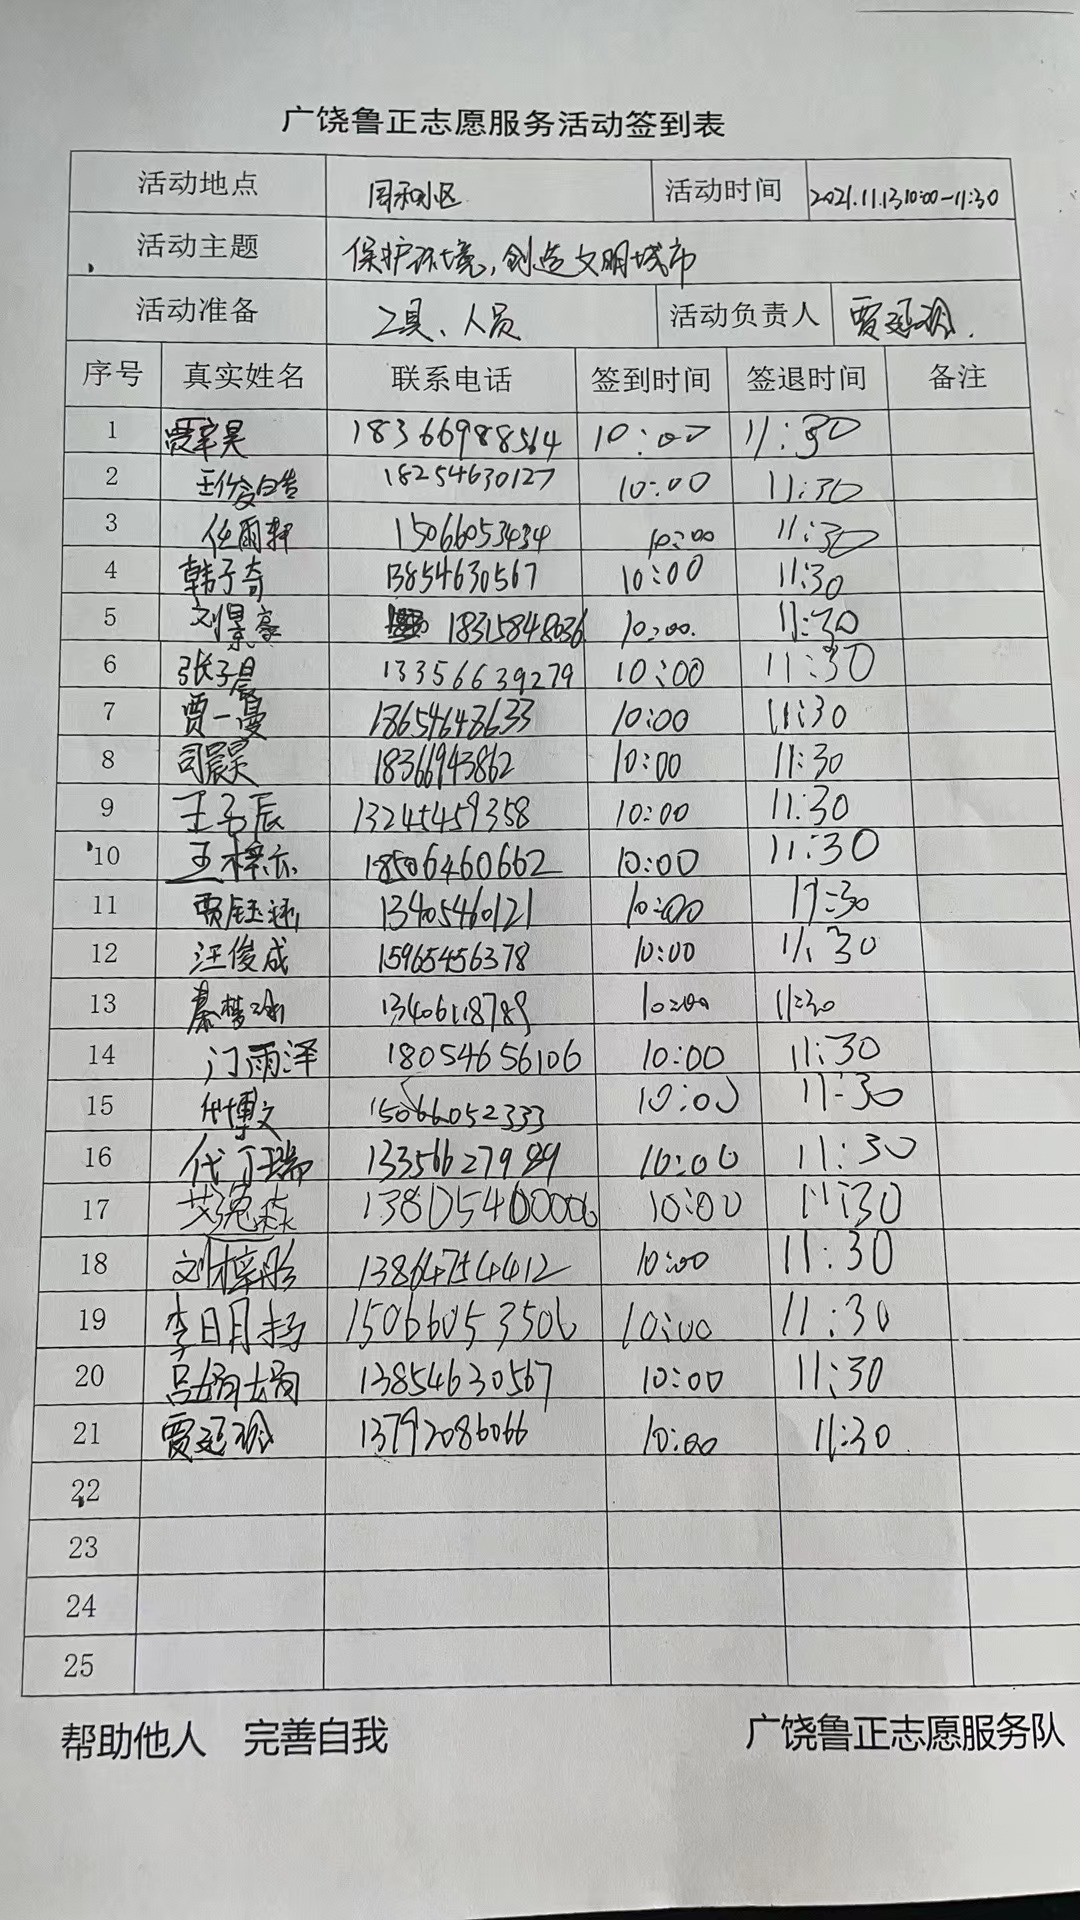 广饶鲁正志愿服务活动签到表
活动地点 同和小区 活动时间 2021.11.13 10:00-11:30
活动主题 保护环境,创造文明城市
活动准备 工具、人员 活动负责人 贾延
序号 真实姓名 联系电话 签到时间 签退时间 备注
1 贾宇昊 18366988564 10:00 11:30
2 18254630127 10:00 11:30
3 任雨轩 15066053434 10:00 11:30
4 韩子奇 13854630567 10:00 11:30
5 刘景豪 18315848036 10:00. 11:30
6 张子晨 13356639279 10:00 11:30
7 贾一曼 18654648633 10:00 11:30
8 司晨昊 18366943862 10:00 11:30
9 王子辰 13245459358 10:00 11:30
10 王梓亦 18506460662 10:00 11:30
11 贾钰涵 13405460121 10:00 11:30
12 汪俊成 15965456378 10:00 11:30
13 秦梦 13406118789 10:00 11:30
14 门雨泽 18054656106 10:00 11:30
15 代博文 15066052333 10:00 11:30
16 代丁瑞 10:00 11:30
17 艾逸森 13805460006 10:00 11:30
18 刘梓彤 13864754412 10:00 11:30
19 李明扬 15066053506 10:00 11:30
20 吕媌媌 13854630567 10:00 11:30
21 贾延 13792086066 10:00 11:30
22
23
24
25
帮助他人 完善自我 广饶鲁正志愿服务队